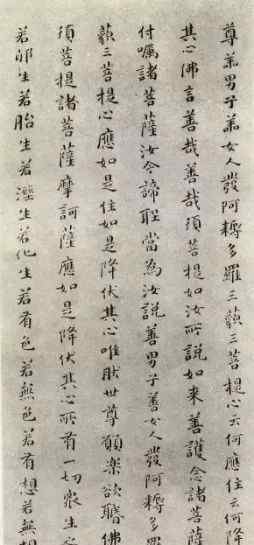 尊善男子善女人發阿耨多羅三藐三菩提心云何應住云何降
其心佛言善哉善哉須菩提如汝所說如來善護念諸菩薩
付囑諸菩薩汝今諦聽當為汝說善男子善女人發阿耨多羅
藐三菩提心應如是住如是降伏其心唯然世尊願樂欲聽佛
須菩提諸菩薩摩訶薩應如是降伏其心所有一切眾生
若卵生若胎生若濕生若化生若有色若無色若有想若無想